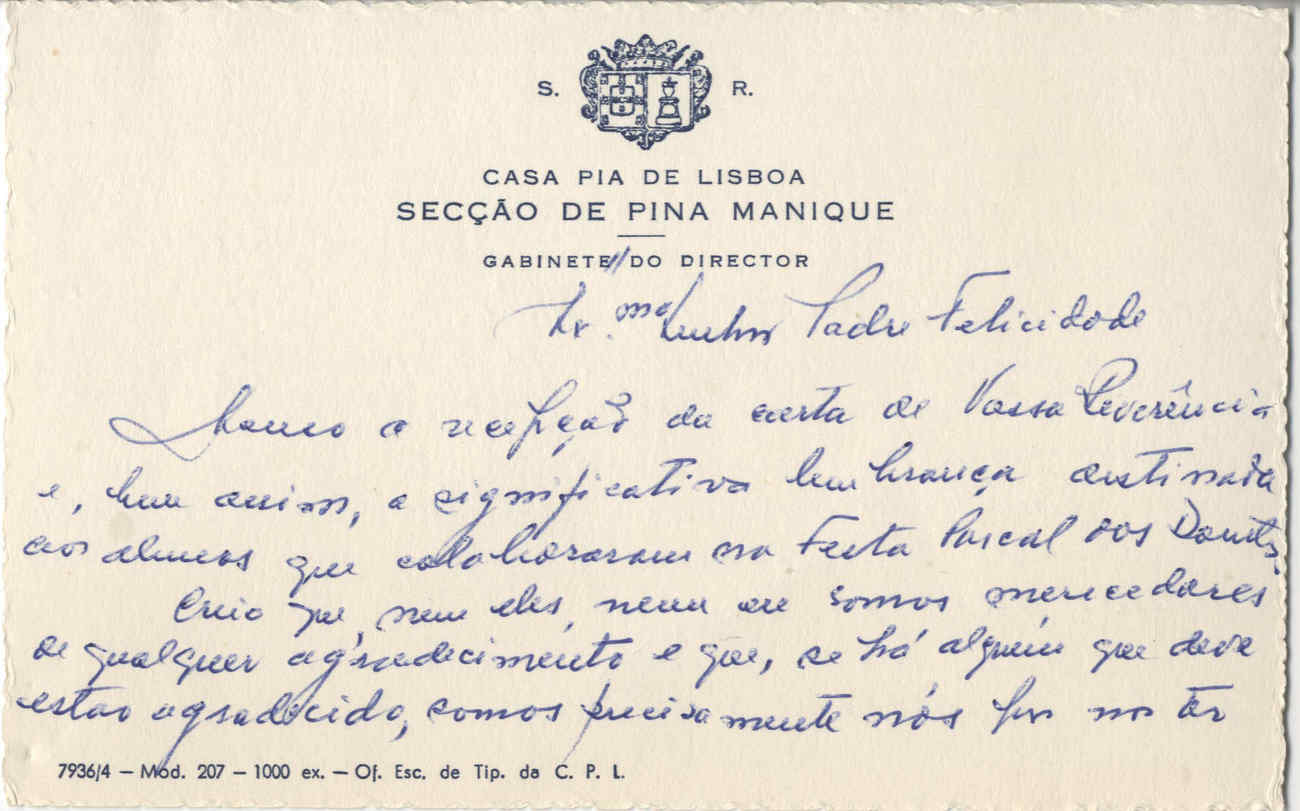 S. R.
CASA PIA DE LISBOA
SECÇÃO DE PINA MANIQUE
GABINETE DO DIRECTOR
Ex.mo Senhor Padre Felicidade
Acuso a recepção da carta de Vossa Reverência
e, bem assim, a significativa lembrança destinada
aos alunos que colaboraram na Festa Pascal dos Doentes.
Creio que, nem eles, nem eu somos merecedores
de qualquer agradecimento e que, se há alguém que deve
estar agradecido, somos precisamente nós por nos ter
7936/4 — Mod. 207 — 1000 ex. — Of. Esc. de Tip. da C. P. L.